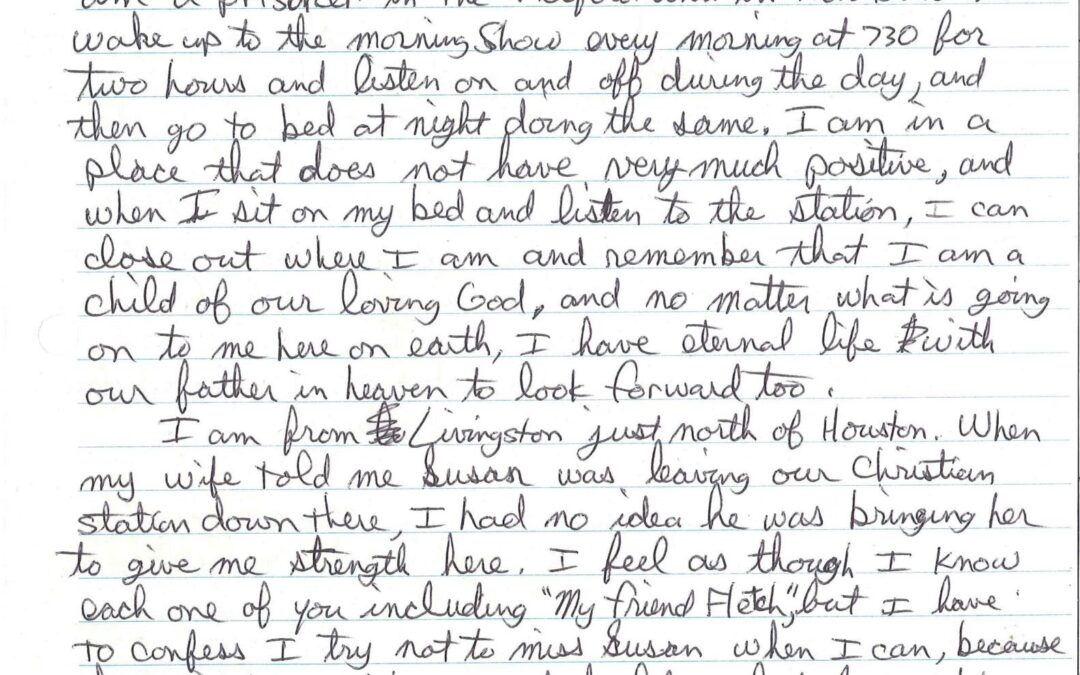 am a prisoner in the
wake up to the morning Show every morning at 730 for
two hours and listen on and off during the day, and
then go to bed at night doing the same. I am in a
place that does not have very much positive, and
when I sit on my bed and listen to the station, I can
close out where I am and remember that I am a
child of our loving God, and no matter what is going
on to me here on earth, I have eternal life with
our father in heaven to look forward too.
I am from Livingston just north of Houston. When
my wife told me Susan was leaving our Christian
station down there, I had no idea he was bringing her
to give me strength here. I feel as though I know
each one of you including "My friend Fletch", but I have
to confess I try not to miss Susan when I can, because